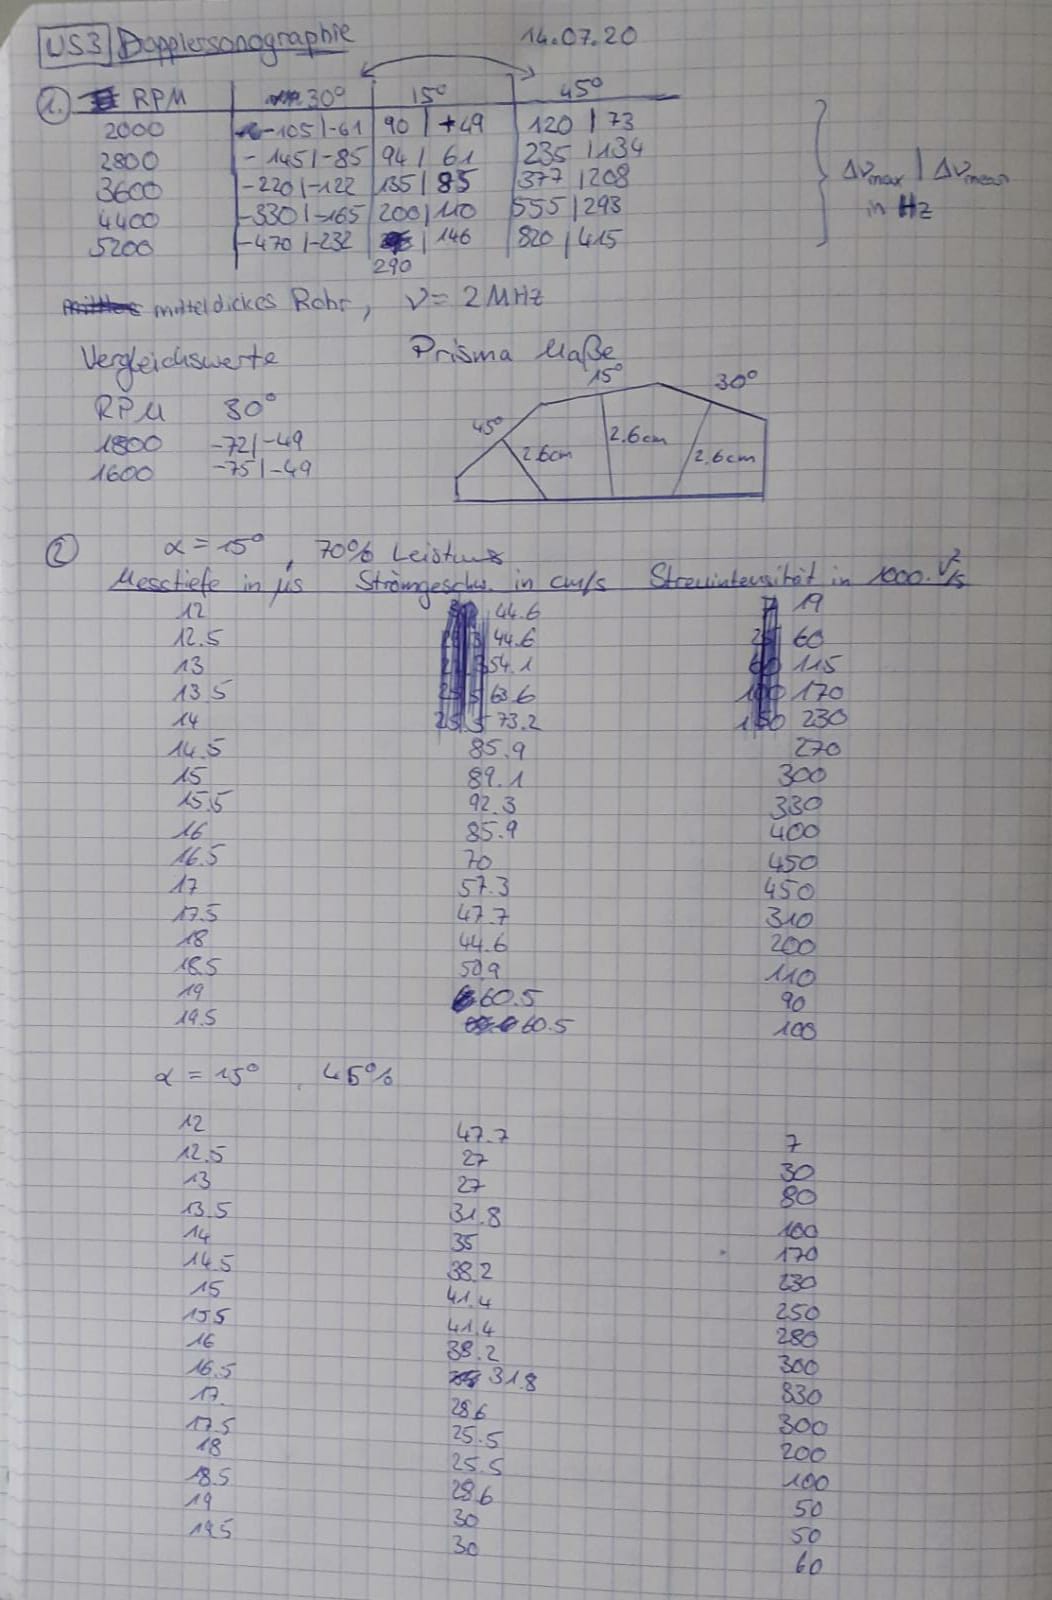 US3 Dopplersonographie 14.07.20
1. RPM 30° 15° 45°
2000 -105|-61 90 | +49 120 | 73
2800 -145|-85 94 | 61 235 | 134
3600 -220|-122 135 | 85 377 | 208
4400 -330|-165 200 | 110 555 | 293
5200 -470|-232 290 | 146 820 | 415
Δν max | Δν mean
in Hz
mitteldickes Rohr, ν = 2 MHz
Vergleichswerte Prisma Maße
RPM 30°
1800 -72|-49
1600 -75|-49
45° 15° 30°
2.6cm 2.6cm 2.6cm
2 α = 15°, 70% Leistung
Messtiefe in μs Strömgeschw. in cm/s Streuintensität in 1000·V²/s
12 44.6 19
12.5 44.6 60
13 54.1 115
13.5 63.6 170
14 73.2 230
14.5 85.9 270
15 89.1 300
15.5 92.3 330
16 85.9 400
16.5 70 450
17 57.3 450
17.5 47.7 310
18 44.6 200
18.5 50.9 110
19 60.5 90
19.5 60.5 100
α = 15°, 45%
12 47.7 7
12.5 27 30
13 27 80
13.5 31.8 100
14 35 170
14.5 38.2 230
15 41.4 250
15.5 41.4 280
16 38.2 300
16.5 31.8 330
17 28.6 300
17.5 25.5 200
18 25.5 100
18.5 28.6 50
19 30 50
19.5 30 60